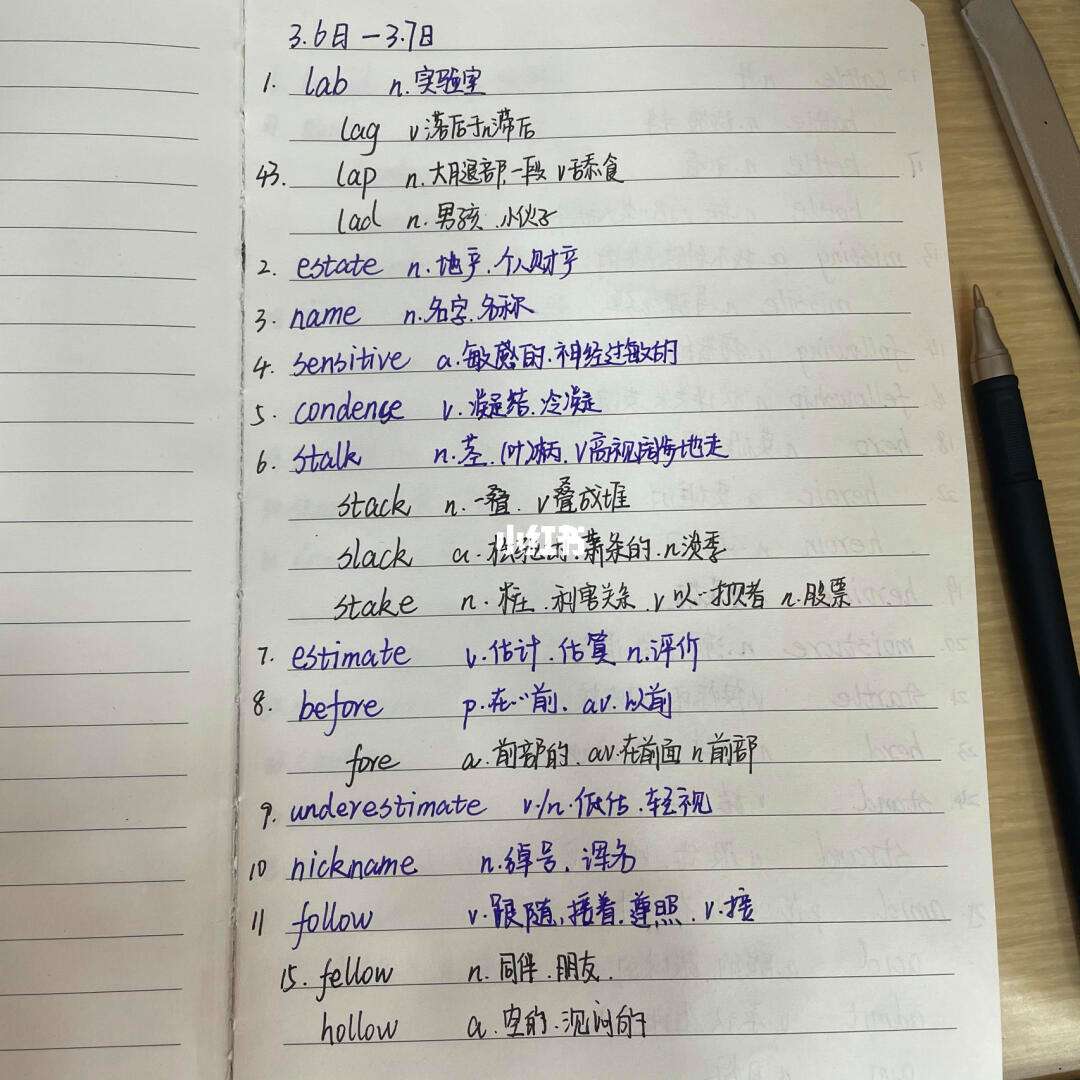 3.6日-3.7日
1. lab n.实验室
lag v落后于n滞后
43. lap n.大腿部.一段 v舔食
lad n.男孩.小伙子
2. estate n.地产.个人财产
3. name n.名字.名称
4. sensitive a.敏感的.神经过敏的
5. condense v.凝结.冷凝
6. stalk n.茎.(叶)柄.v高视阔步地走
stack n.一叠. v叠成堆
小红书
slack a. 萧条的.n淡季
stake n.桩.利害关系.v以…打赌 n.股票
7. estimate v.估计.估算 n.评价
8. before p.在…前. av.以前
fore a.前部的.av.在前面 n前部
9. underestimate v./n.低估.轻视
10 nickname n.绰号.诨名
11 follow v.跟随,接着.遵照.v.接
15. fellow n.同伴.朋友.
hollow a.空的.沉闷的